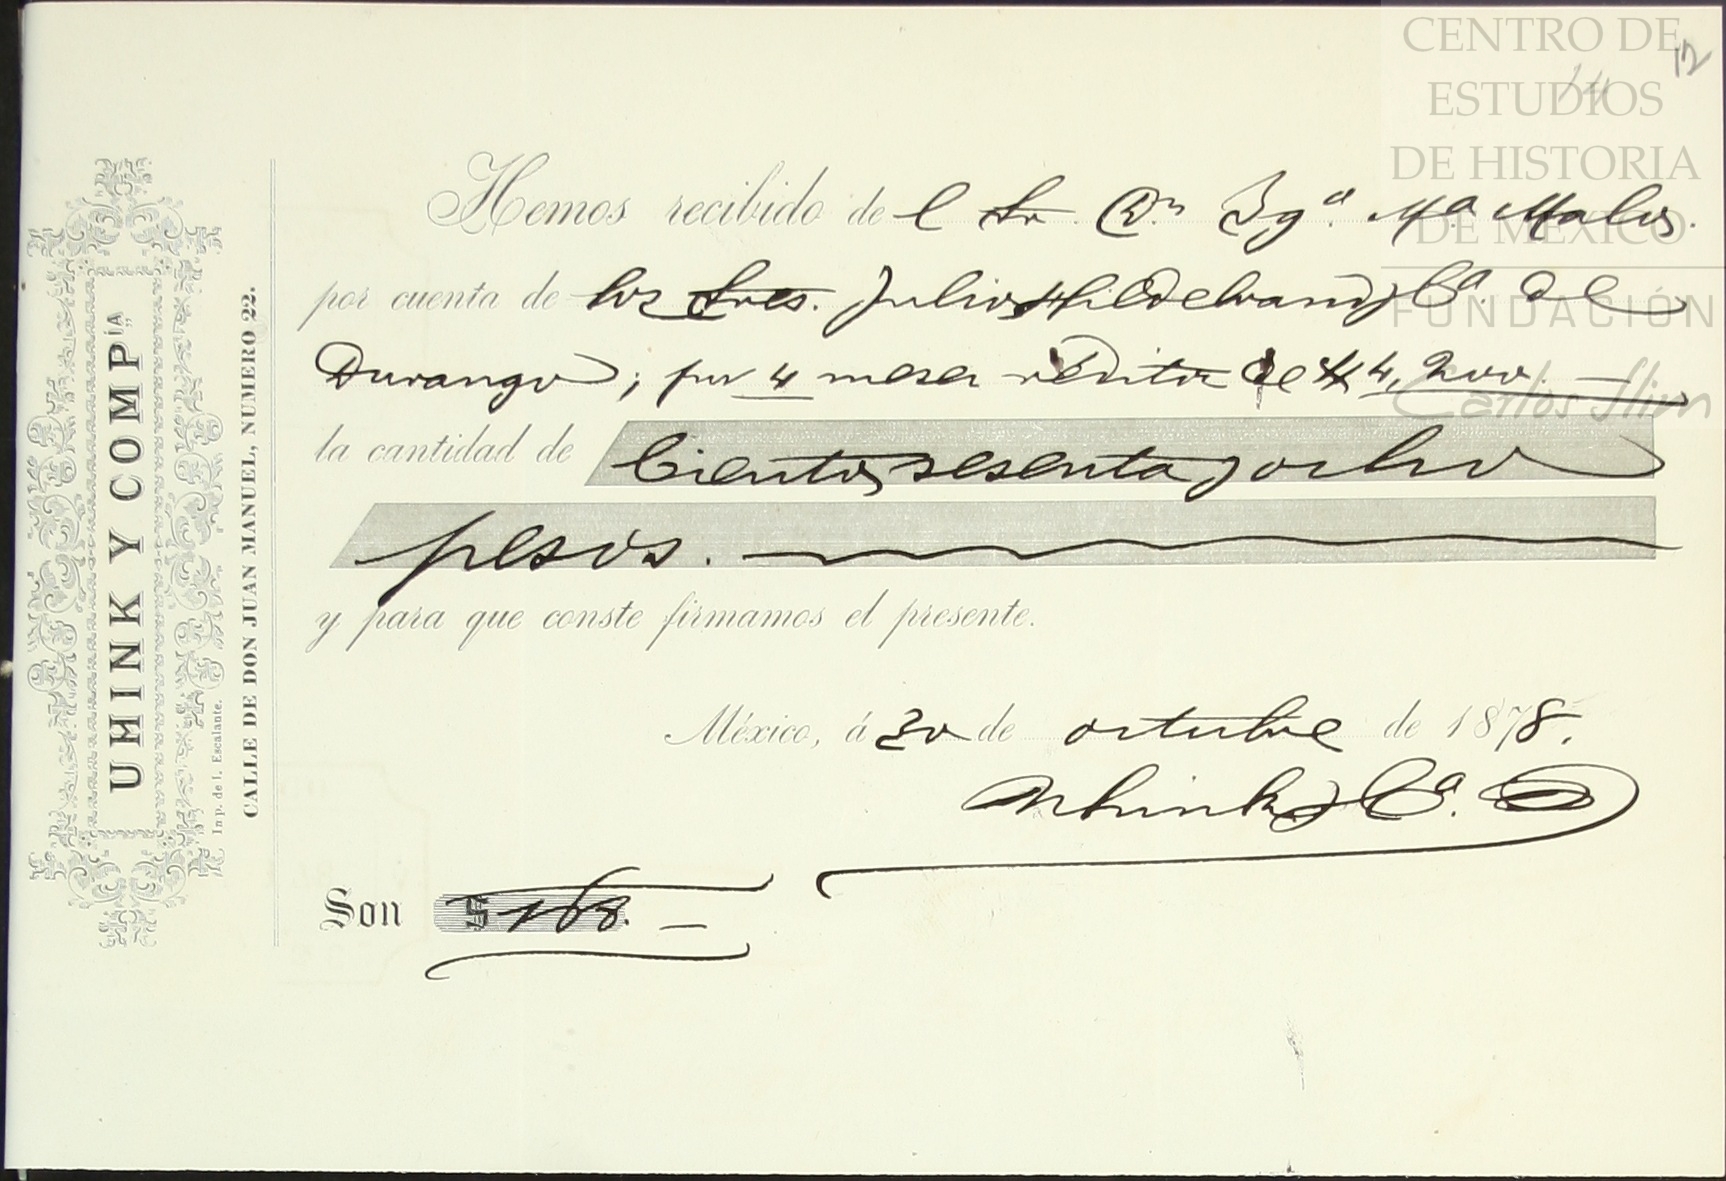 CENTRO DE
ESTUDIOS
DE HISTORIA
DE MÉXICO
FUNDACIÓN
Carlos Slim
12
14
UHINK Y COMPIA
Imp. de I. Escalante.
CALLE DE DON JUAN MANUEL, NUMERO 22.
Hemos recibido de l Sr. Dn Igo. Ma. Malos.
por cuenta de los Sres. Julio Hildebrand y Ca de
Durango; por 4 meses réditos de $ 4,200. —
la cantidad de Ciento sesenta y ocho
pesos.
y para que conste firmamos el presente.
México, á 30 de octubre de 1878.
Uhink y Ca.
Son $ 168. —